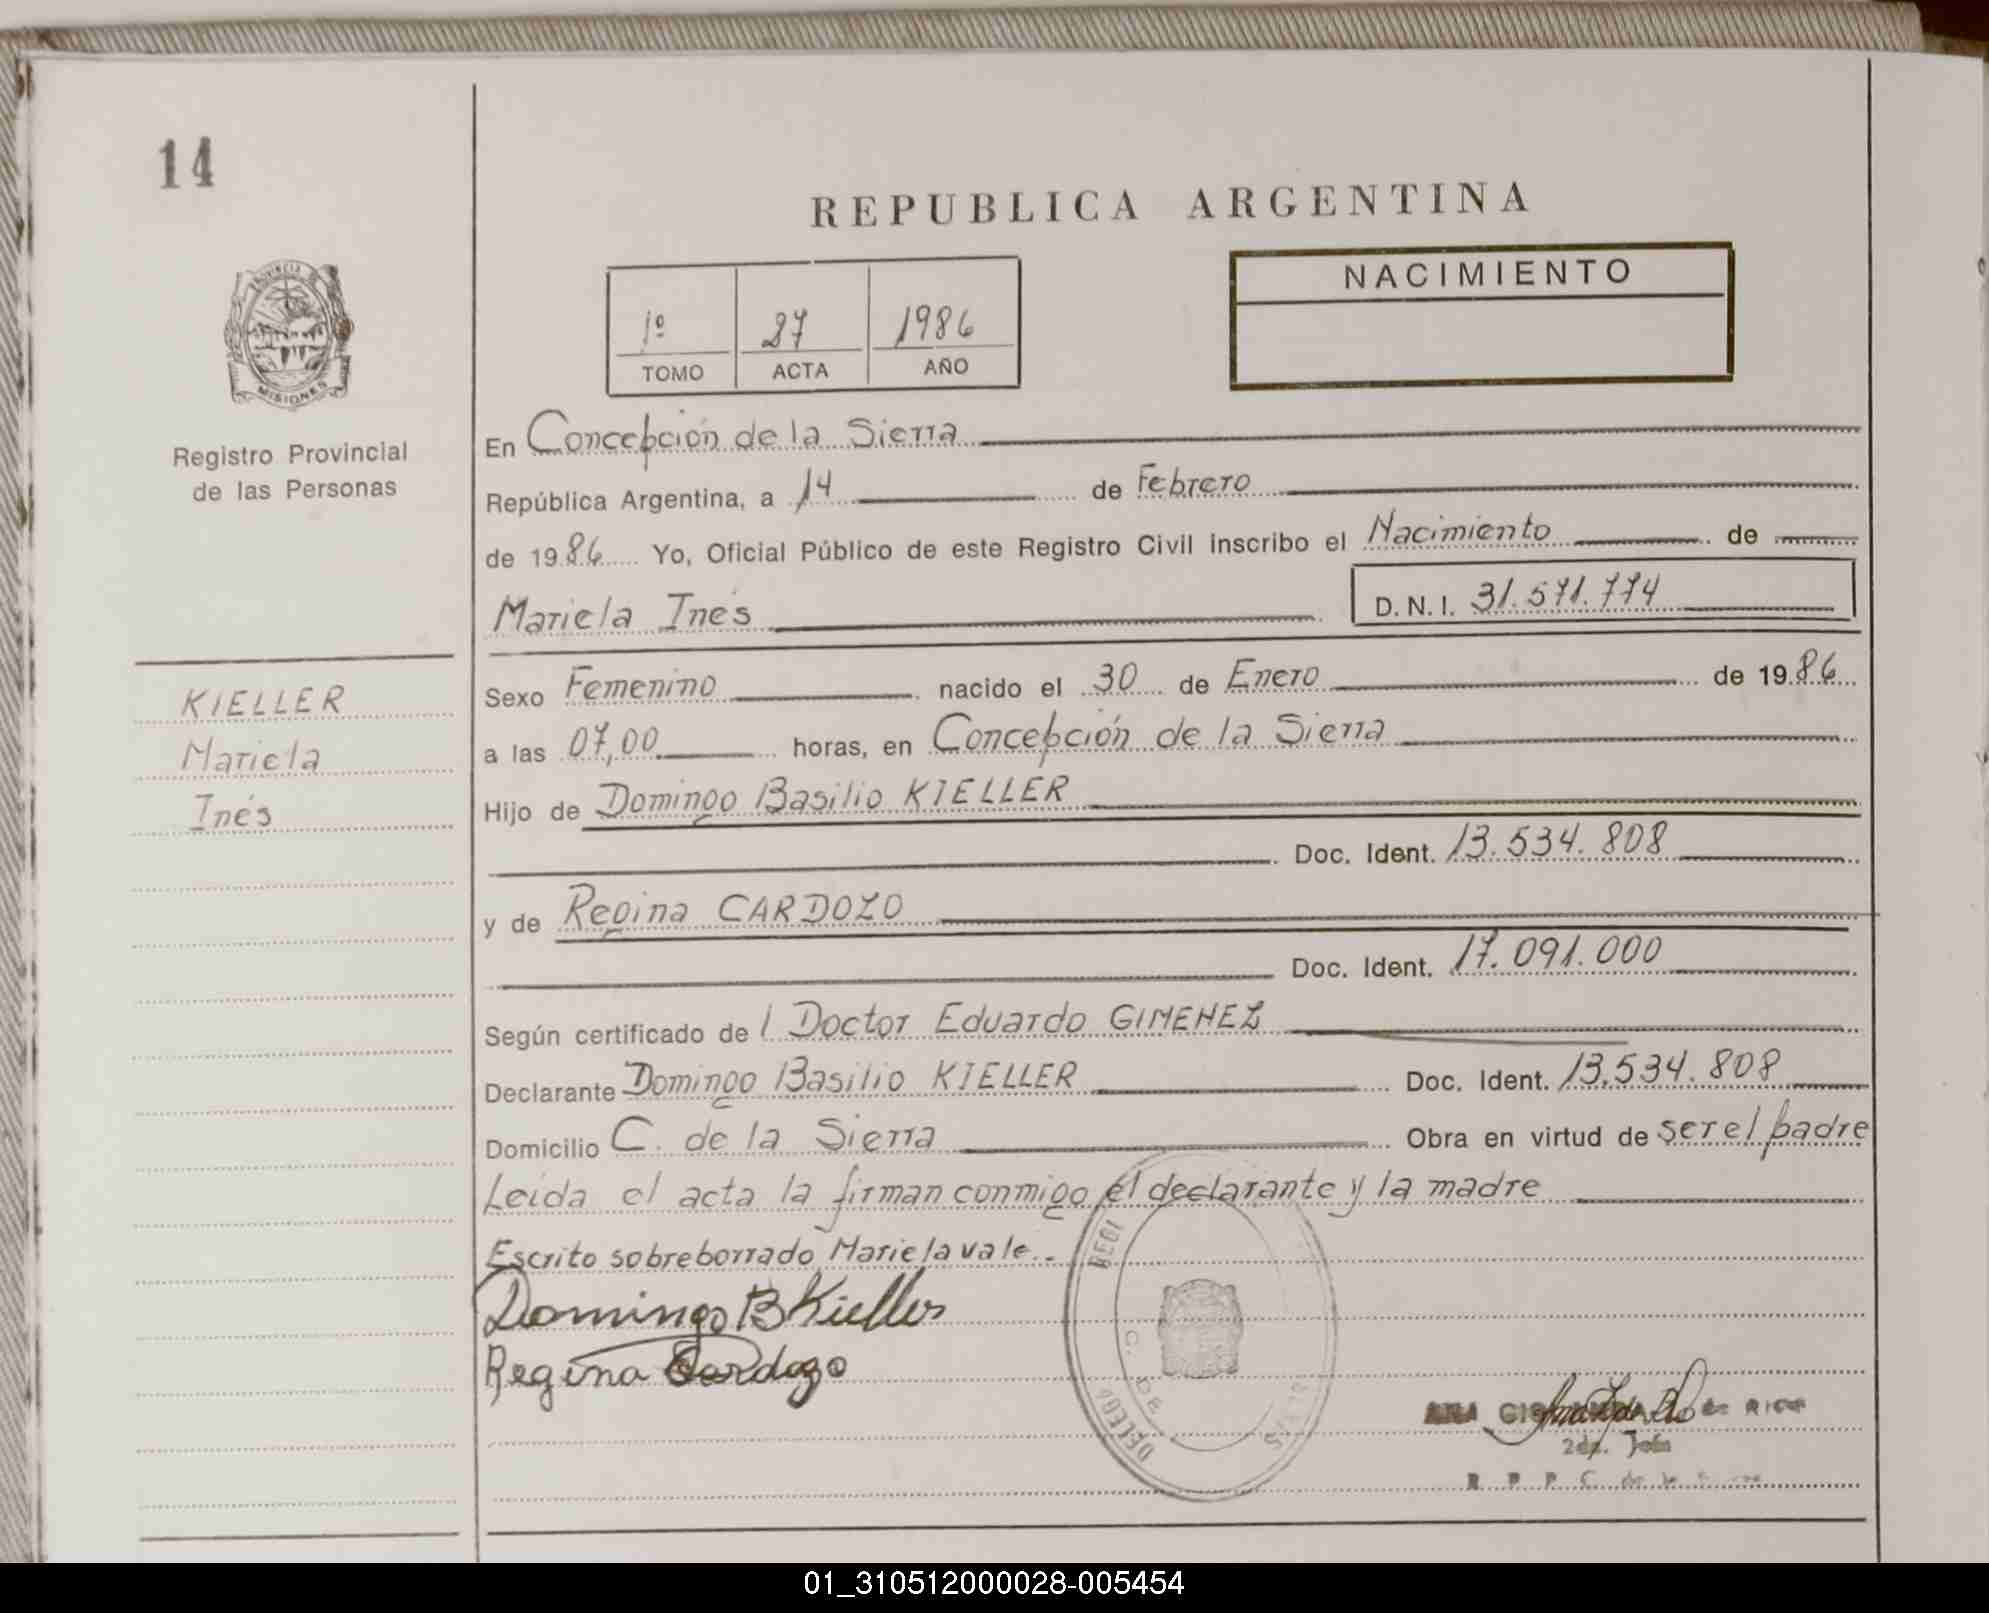 14
REPUBLICA ARGENTINA
NACIMIENTO
1º 27 1986
TOMO ACTA AÑO
PROVINCIA DE
MISIONES
Registro Provincial
de las Personas
En Concepción de la Sierra
República Argentina, a 14 de Febrero
de 1986 Yo, Oficial Público de este Registro Civil inscribo el Nacimiento de
Mariela Inés D.N.I. 31.571.774
KIELLER
Mariela
Inés
Sexo Femenino nacido el 30 de Enero de 1986
a las 07,00 horas, en Concepción de la Sierra
Hijo de Domingo Basilio KIELLER
Doc. Ident. 13.534.808
y de Regina CARDOZO
Doc. Ident. 17.091.000
Según certificado de l Doctor Eduardo GIMENEZ
Declarante Domingo Basilio KIELLER Doc. Ident. 13.534.808
Domicilio C. de la Sierra Obra en virtud de ser el padre
Leída el acta la firman conmigo el declarante y la madre
Escrito sobreborrado Mariela vale.-
Domingo B Kieller
Regina Cardozo
ANA DE RIOS
2da. Jefa
01_310512000028-005454